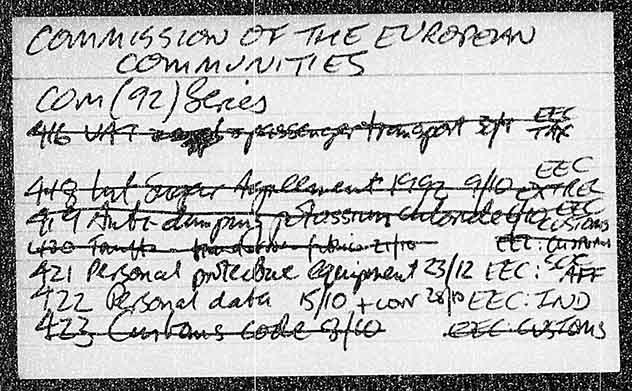 COMMISSION OF THE EUROPEAN
COMMUNITIES
COM (92) Series
416 VAT passenger transport EEC TAX
418 Int Sugar Agreement 1992 9/10 EEC EXTREL
419 Anti-dumping potassium chloride EEC CUSTOMS
420 Tariffs fabric 21/10 EEC: CUSTOMS
421 Personal protective equipment 23/12 EEC: SOC AFF
422 Personal data 15/10 + corr 28/10 EEC: IND
423 Customs code 9/10 EEC CUSTOMS